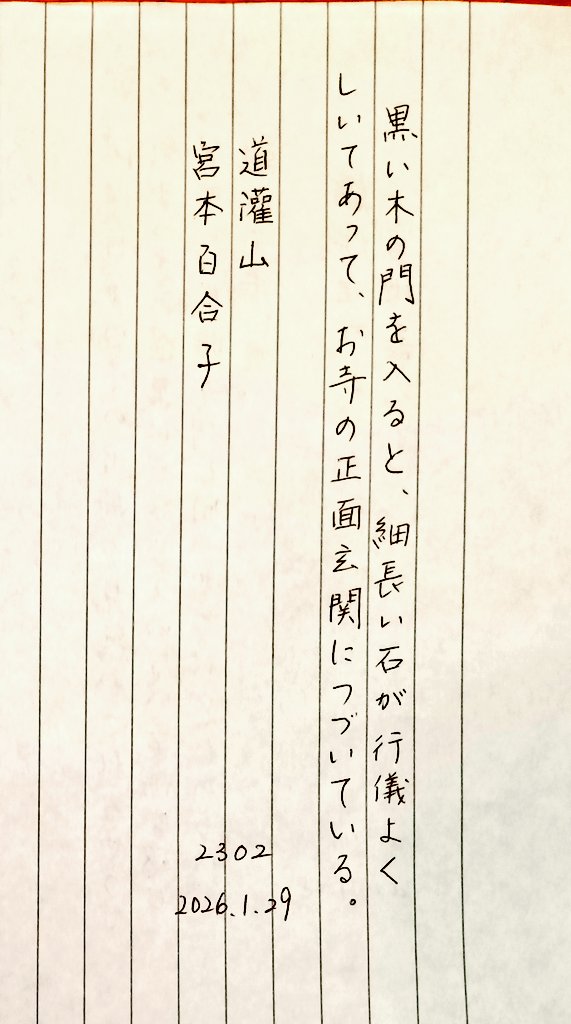 黒い木の門を入ると、細長い石が行儀よく
しいてあって、お寺の正面玄関につづいている。
道灌山
宮本百合子
2302
2026.1.29